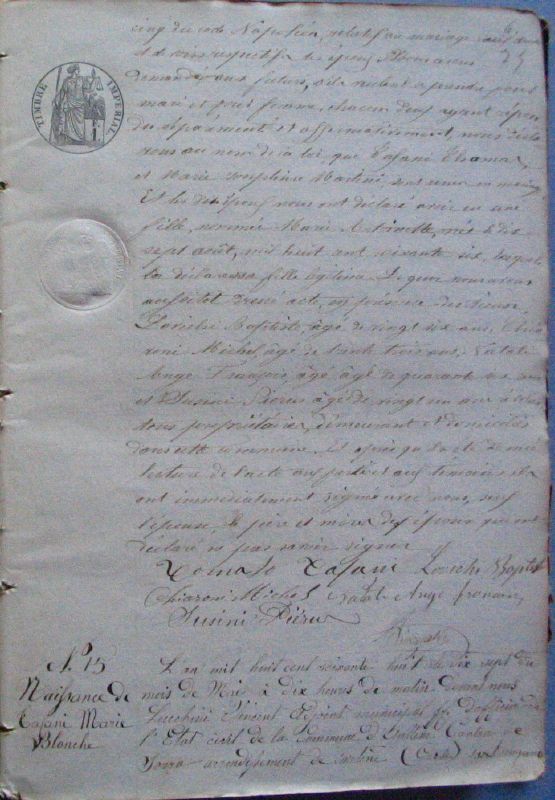 TIMBRE IMPERIAL
cinq du code Napoléon, relatif au mariage
et devoirs respectifs des époux. Nous avons
demandé aux futurs, s'ils veulent se prendre pour
mari et pour femme, chacun d'eux ayant répon
du séparément et affirmativement, nous décla
rons au nom de la loi, que Casani Thomas,
et Marie Joséphine Martini, sont unis en mariage
Et les dits époux nous ont déclaré avoir eu une
fille, nommée Marie Antoinette, née le dix
sept août, mil huit cent soixante six, laquelle
ils déclarent fille légitime. De quoi nous avons
aussitôt dressé acte, en présence des sieurs
Baptiste, âgé de vingt six ans, Chia
roni Michel, âgé de trente trois ans, Natali
Ange François, âgé âgé de quarante ans
et Susini Pierre âgé de vingt un ans
tous propriétaires, demeurant et domiciliés
dans cette commune. Et après qu'il a été donné
lecture de l'acte aux parties et aux témoins ils
ont immédiatement signé avec nous, sauf
l'épouse, le père et mère des époux qui ont
déclaré ne pas savoir signer
Tomaso Casani Baptiste
Chiaroni Michel Natali Ange François
Susini Pierre
N° 15
Naissance de
Casani Marie
Blanche
L'an mil huit cent soixante huit le dix sept du
mois de Mai à dix heures du matin devant nous
Lucchini Vincent Adjoint municipal
l'Etat civil de la Commune de Canton de
arrondissement de Sartène (Corse)